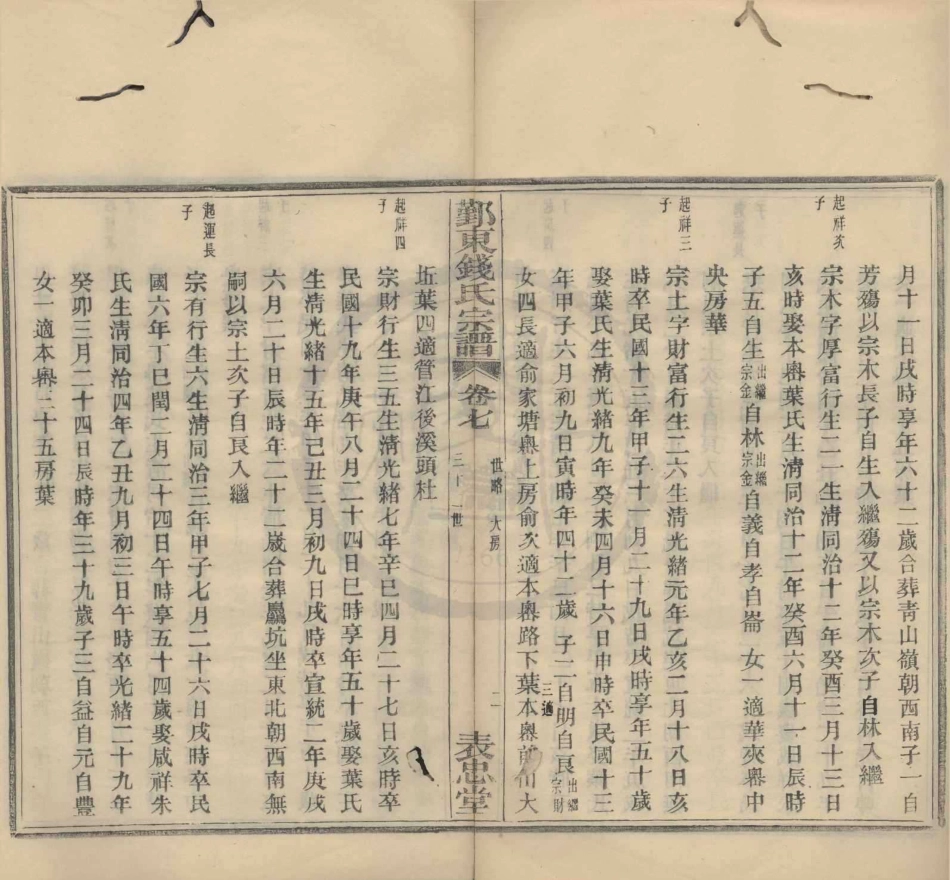 月十一日戌時享年六十二歲合葬靑山嶺朝西南子一自
芳殤以宗木長子自生入繼殤又以宗木次子自林入繼
起祥次子
宗木字厚富行生二一生淸同治十二年癸酉三月十三日
亥時娶本嶴葉氏生淸同治十二年癸酉六月十一日辰時
子五自生出繼宗金自林出繼宗金自義自孝自崙 女一適華夾嶴中
央房華
起祥三子
宗土字財富行生二六生淸光緒元年乙亥二月十八日亥
時卒民國十三年甲子十一月二十九日戌時享年五十歲
娶葉氏生淸光緒九年癸未四月十六日申時卒民國十三
年甲子六月初九日寅時年四十二歲 子二自明自良出繼宗財
女四長適俞家塘嶴上房俞次適本嶴路下葉三適本嶴前山大
鄞東錢氏宗譜 卷七 世略 大房 世 二 表忠堂
坵葉四適管江後溪頭杜
起祥四子
宗財行生三五生淸光緒七年辛巳四月二十七日亥時卒
民國十九年庚午八月二十四日巳時享年五十歲娶葉氏
生淸光緒十五年己丑三月初九日戌時卒宣統二年庚戌
六月二十日辰時年二十二歲合葬坑坐東北朝西南無
嗣以宗土次子自良入繼
起運長子
宗有行生六生淸同治三年甲子七月二十六日戌時卒民
國六年丁巳閏二月二十四日午時享五十四歲娶咸祥朱
氏生淸同治四年乙丑九月初三日午時卒光緒二十九年
癸卯三月二十四日辰時年三十九歲子三自益自元自豐
女一適本嶴三十五房葉